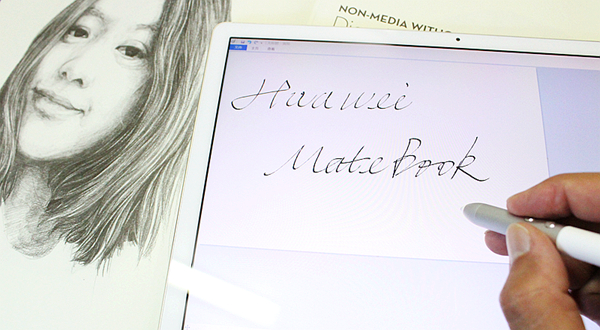 NON-MEDIA WITH
Huawei
MateBook